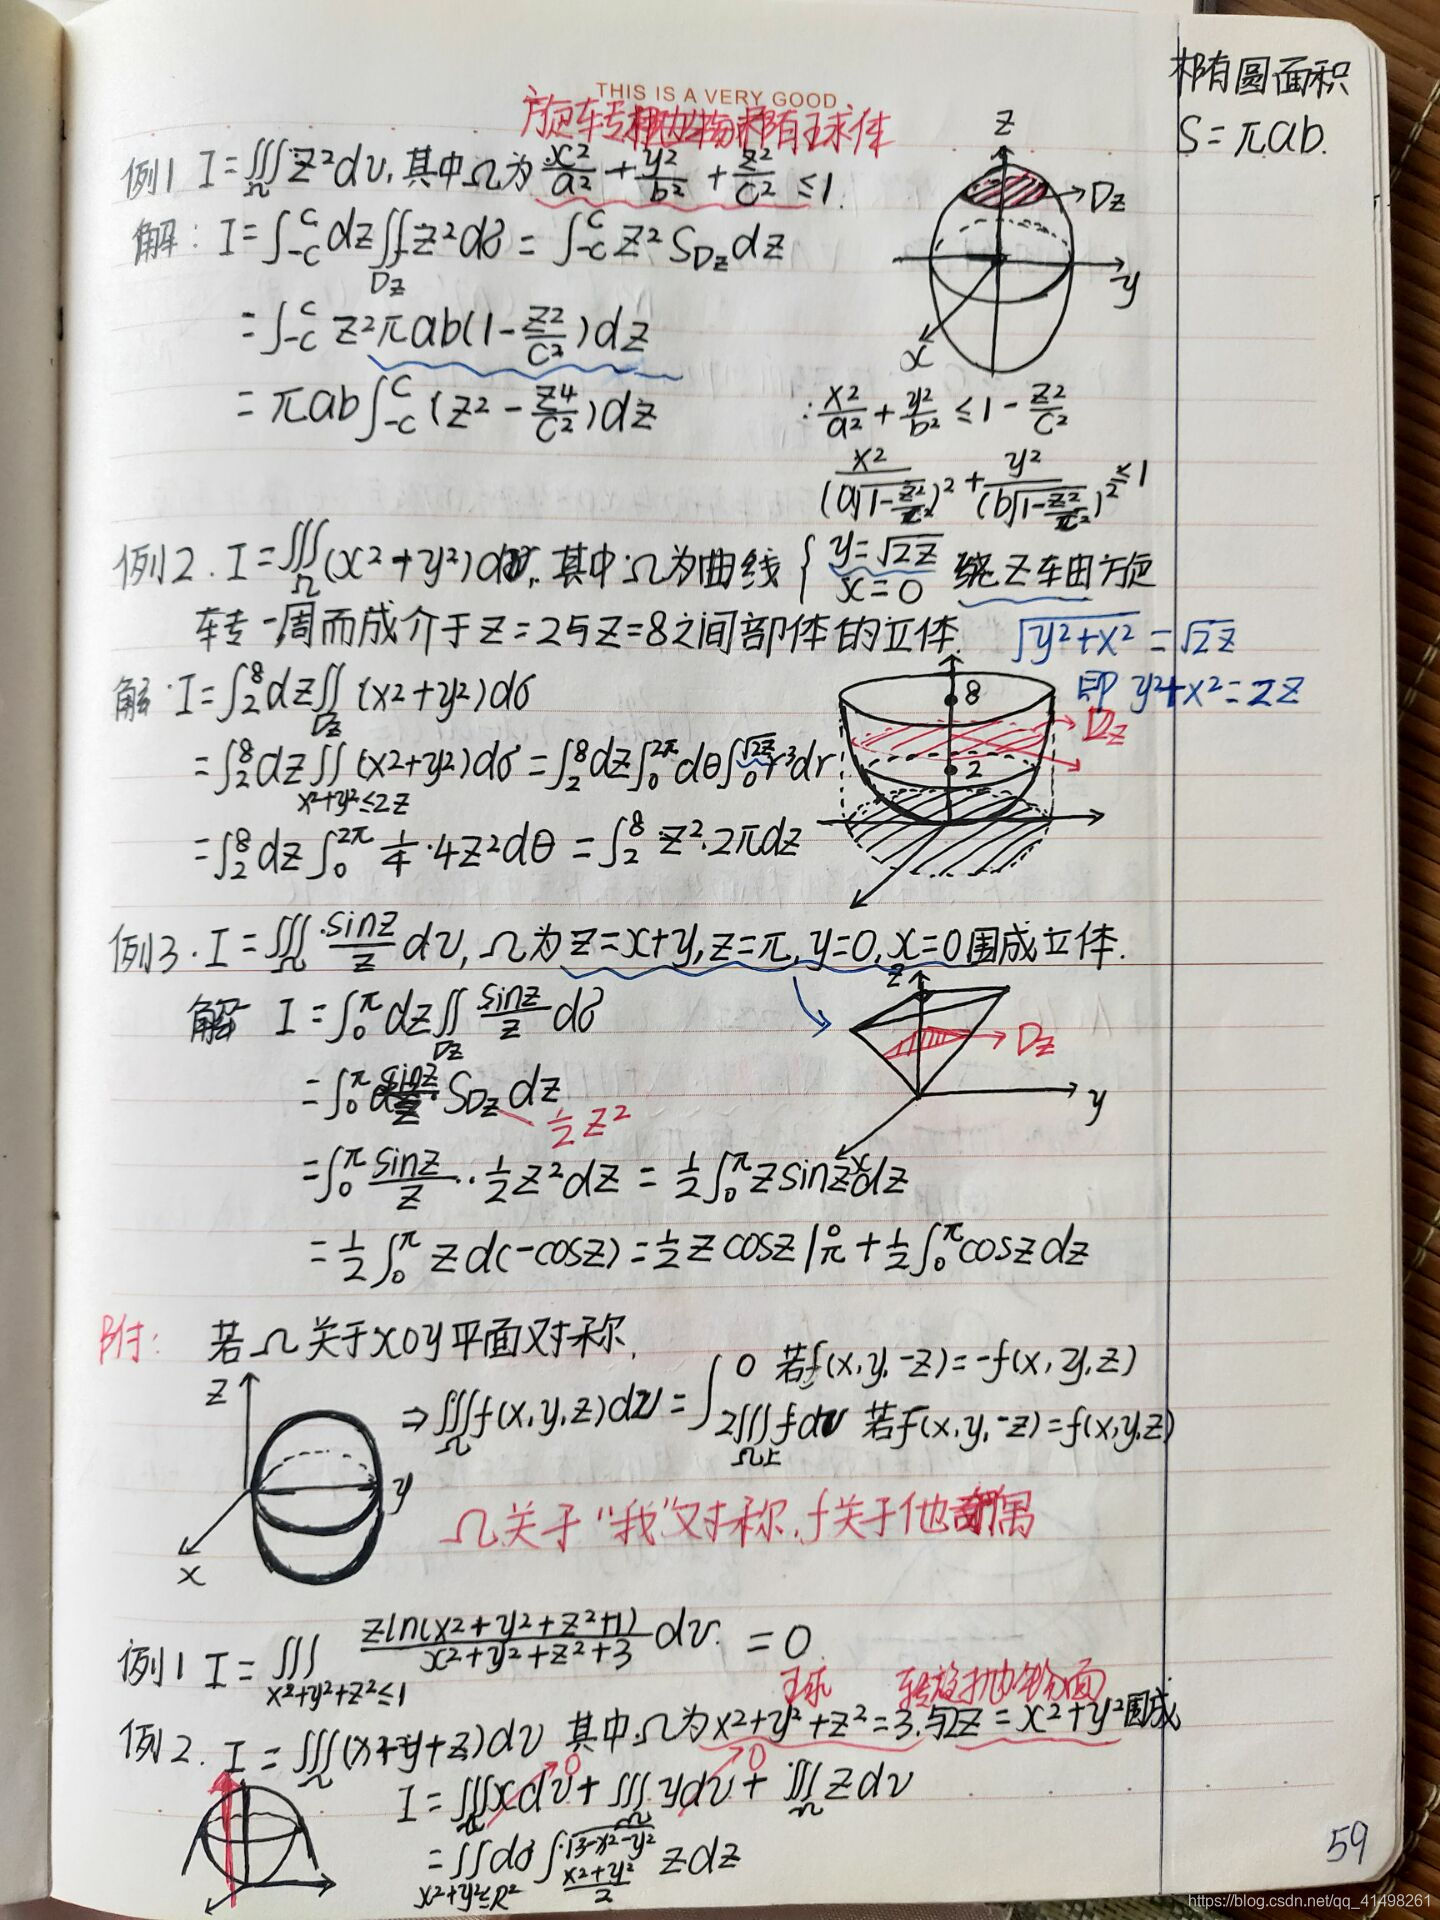 THIS IS A VERY GOOD
椭圆面积
S=πab.
椭球体
例1 I=∭_Ω z²dv,其中Ω为 x²/a²+y²/b²+z²/c²≤1.
解: I=∫_{-c}^{c}dz∬_{Dz}z²dσ=∫_{-c}^{c}z²S_{Dz}dz
=∫_{-c}^{c} z²πab(1-z²/c²)dz
=πab∫_{-c}^{c}(z²-z⁴/c²)dz
z
Dz
y
x
∴x²/a²+y²/b²≤1-z²/c²
x²/(a√1-z²/c²)²+y²/(b√1-z²/c²)²≤1
例2. I=∭_Ω(x²+y²)dv,其中Ω为曲线{y=√2z x=0 绕z轴旋
转一周而成介于z=2与z=8之间部体的立体.
√y²+x²=√2z
即 y²+x²=2z
解.I=∫_2^8dz∬_{Dz}(x²+y²)dσ
=∫_2^8dz∬_{x²+y²≤2z}(x²+y²)dσ=∫_2^8dz∫_0^{2π}dθ∫_0^{√2z}r³dr
=∫_2^8dz∫_0^{2π}1/4·4z²dθ=∫_2^8 z²·2πdz
8
Dz
2
例3.I=∭_Ω sinz/z dv,Ω为z=x+y,z=π,y=0,x=0围成立体.
解 I=∫_0^π dz∬_{Dz} sinz/z dσ
=∫_0^π sinz/z S_{Dz}dz
1/2z²
=∫_0^π sinz/z··1/2z²dz=1/2∫_0^π zsinzdz
=1/2∫_0^π zd(-cosz)=1/2zcosz|_π^0+1/2∫_0^π coszdz
z
Dz
y
x
附: 若Ω关于xoy平面对称,
⇒∭_Ω f(x,y,z)dv={0 若f(x,y,-z)=-f(x,y,z)
2∭_{Ω上}fdv 若f(x,y,-z)=f(x,y,z)
z
y
x
Ω关于"我"对称,f关于他奇偶
例1 I=∭_{x²+y²+z²≤1} zln(x²+y²+z²+1)/x²+y²+z²+3 dv.=0
球 旋转抛物面
例2. I=∭_Ω(x+y+z)dv 其中Ω为x²+y²+z²=3.与2z=x²+y²围成
I=∭_Ω xdv+∭_Ω ydv+∭_Ω zdv
0
0
=∬_{x²+y²≤R²}dσ∫_{x²+y²/2}^{√3-x²-y²}zdz
59
https://blog.csdn.net/qq_41498261